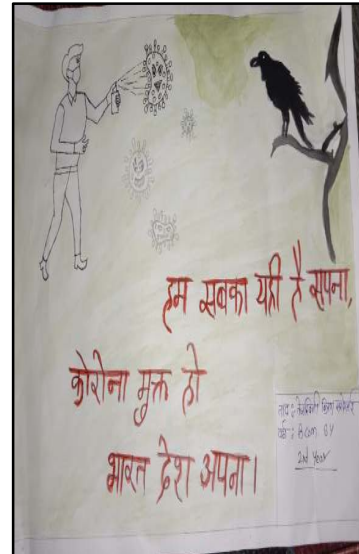 हम सबका यही है सपना,
कोरोना मुक्त हो
भारत देश अपना।
नाव :
वर्ग : B.com SY
2nd Year